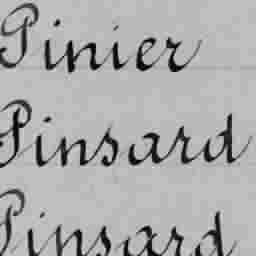 Pinier
Pinsard
Pinsard